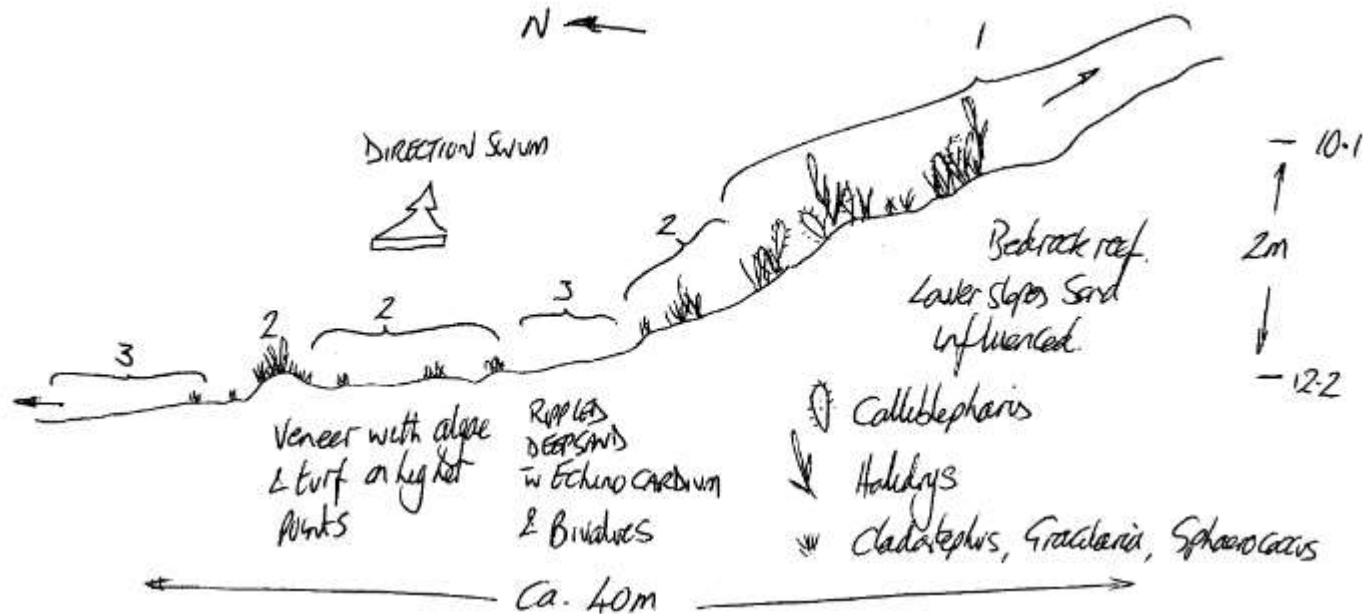 N
1
DIRECTION SWUM
10.1
2
Bedrock reef.
2m
Lower slopes Sand
influenced.
3
2
2
3
12.2
Veneer with algae
& turf on higher
points
RIPPLED
DEEP SAND
w ECHINOCARDIUM
& Bivalves
Calliblepharis
Halidrys
Cladostephus, Gracilaria, Sphaerococcus
Ca. 40m